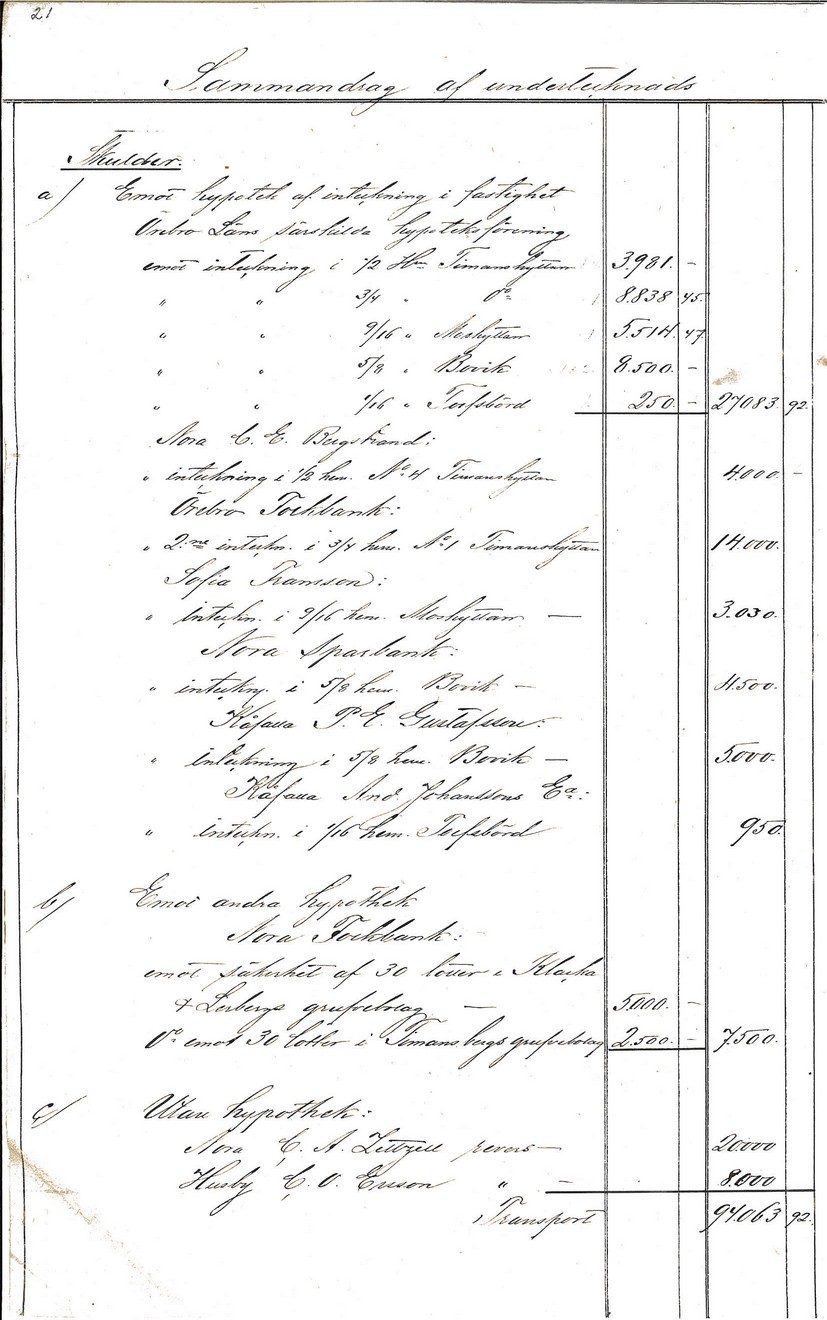 21
Sammandrag af undertecknads
Skulder.
a/ Emot hypotek af inteckning i fastighet
Örebro Läns särskilda hypoteksförening
emot inteckning i 1/2 Hem Timanshyttan 3.981. -
" " 3/4 " Do 8.838 45.
" " 9/16 " Moshyttan 5.514. 47.
" " 5/8 " Bovik 8.500. -
" " 1/16 " Torfsbörd 250. - 27083. 92.
Nora C. E. Bergstrand:
" inteckning i 1/2 hem. No 4 Timanshyttan 4.000 -
Örebro Fockbank:
" 2:ne inteckn. i 3/4 hem. No 1 Timanshyttan 14.000.
Sofia Framson:
" inteckn. i 9/16 hem. Moshyttan — 3.030.
Nora Sparbank:
" inteckn. i 5/8 hem. Bovik — 4.500.
Kåfalla P. E. Gustafsson:
" inteckning i 5/8 hem. Bovik — 5.000.
Kåfalla And. Johanssons Ea:
" inteckn. i 1/16 hem. Torfsbörd 950.
b/ Emot andra hypothek
Nora Fockbank:
emot säkerhet af 30 lotter i Klacka
& Lerbergs grufvebolag — 5.000. -
Do emot 30 lotter i Timansbergs grufvebolag 2.500. - 7.500.
c/ Utan hypothek:
Nora C. A. Zettzell revers — 20000
Husby C. O. Ersson " — 8.000
Transport 94.063 92.